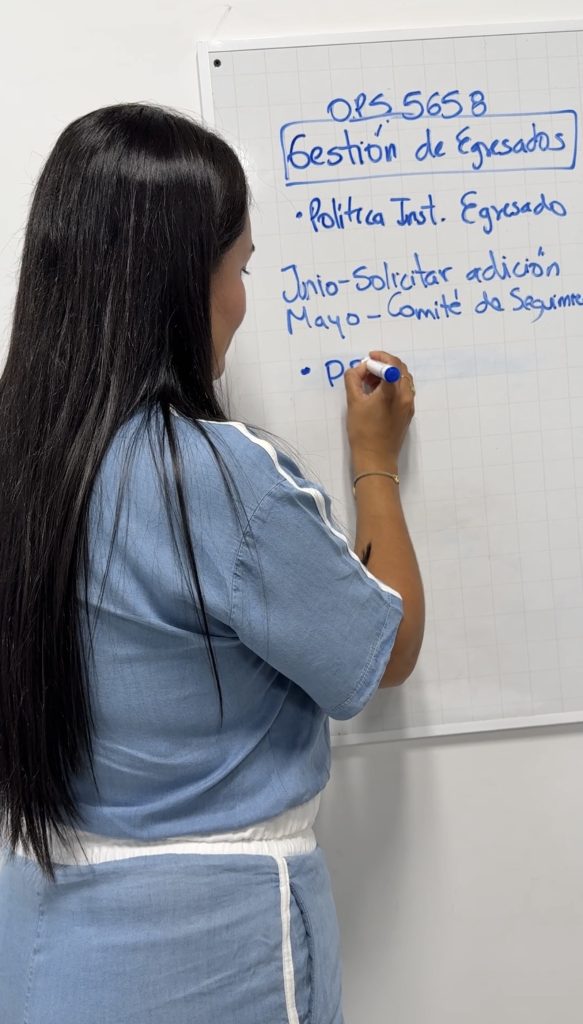 O.P.S. 5658
Gestión de Egresados
• Política Inst. Egresado
Junio-Solicitar adición
Mayo - Comité de Seguimie
• P